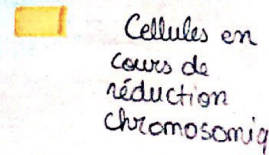 Cellules en
cours de
réduction
chromosomiq